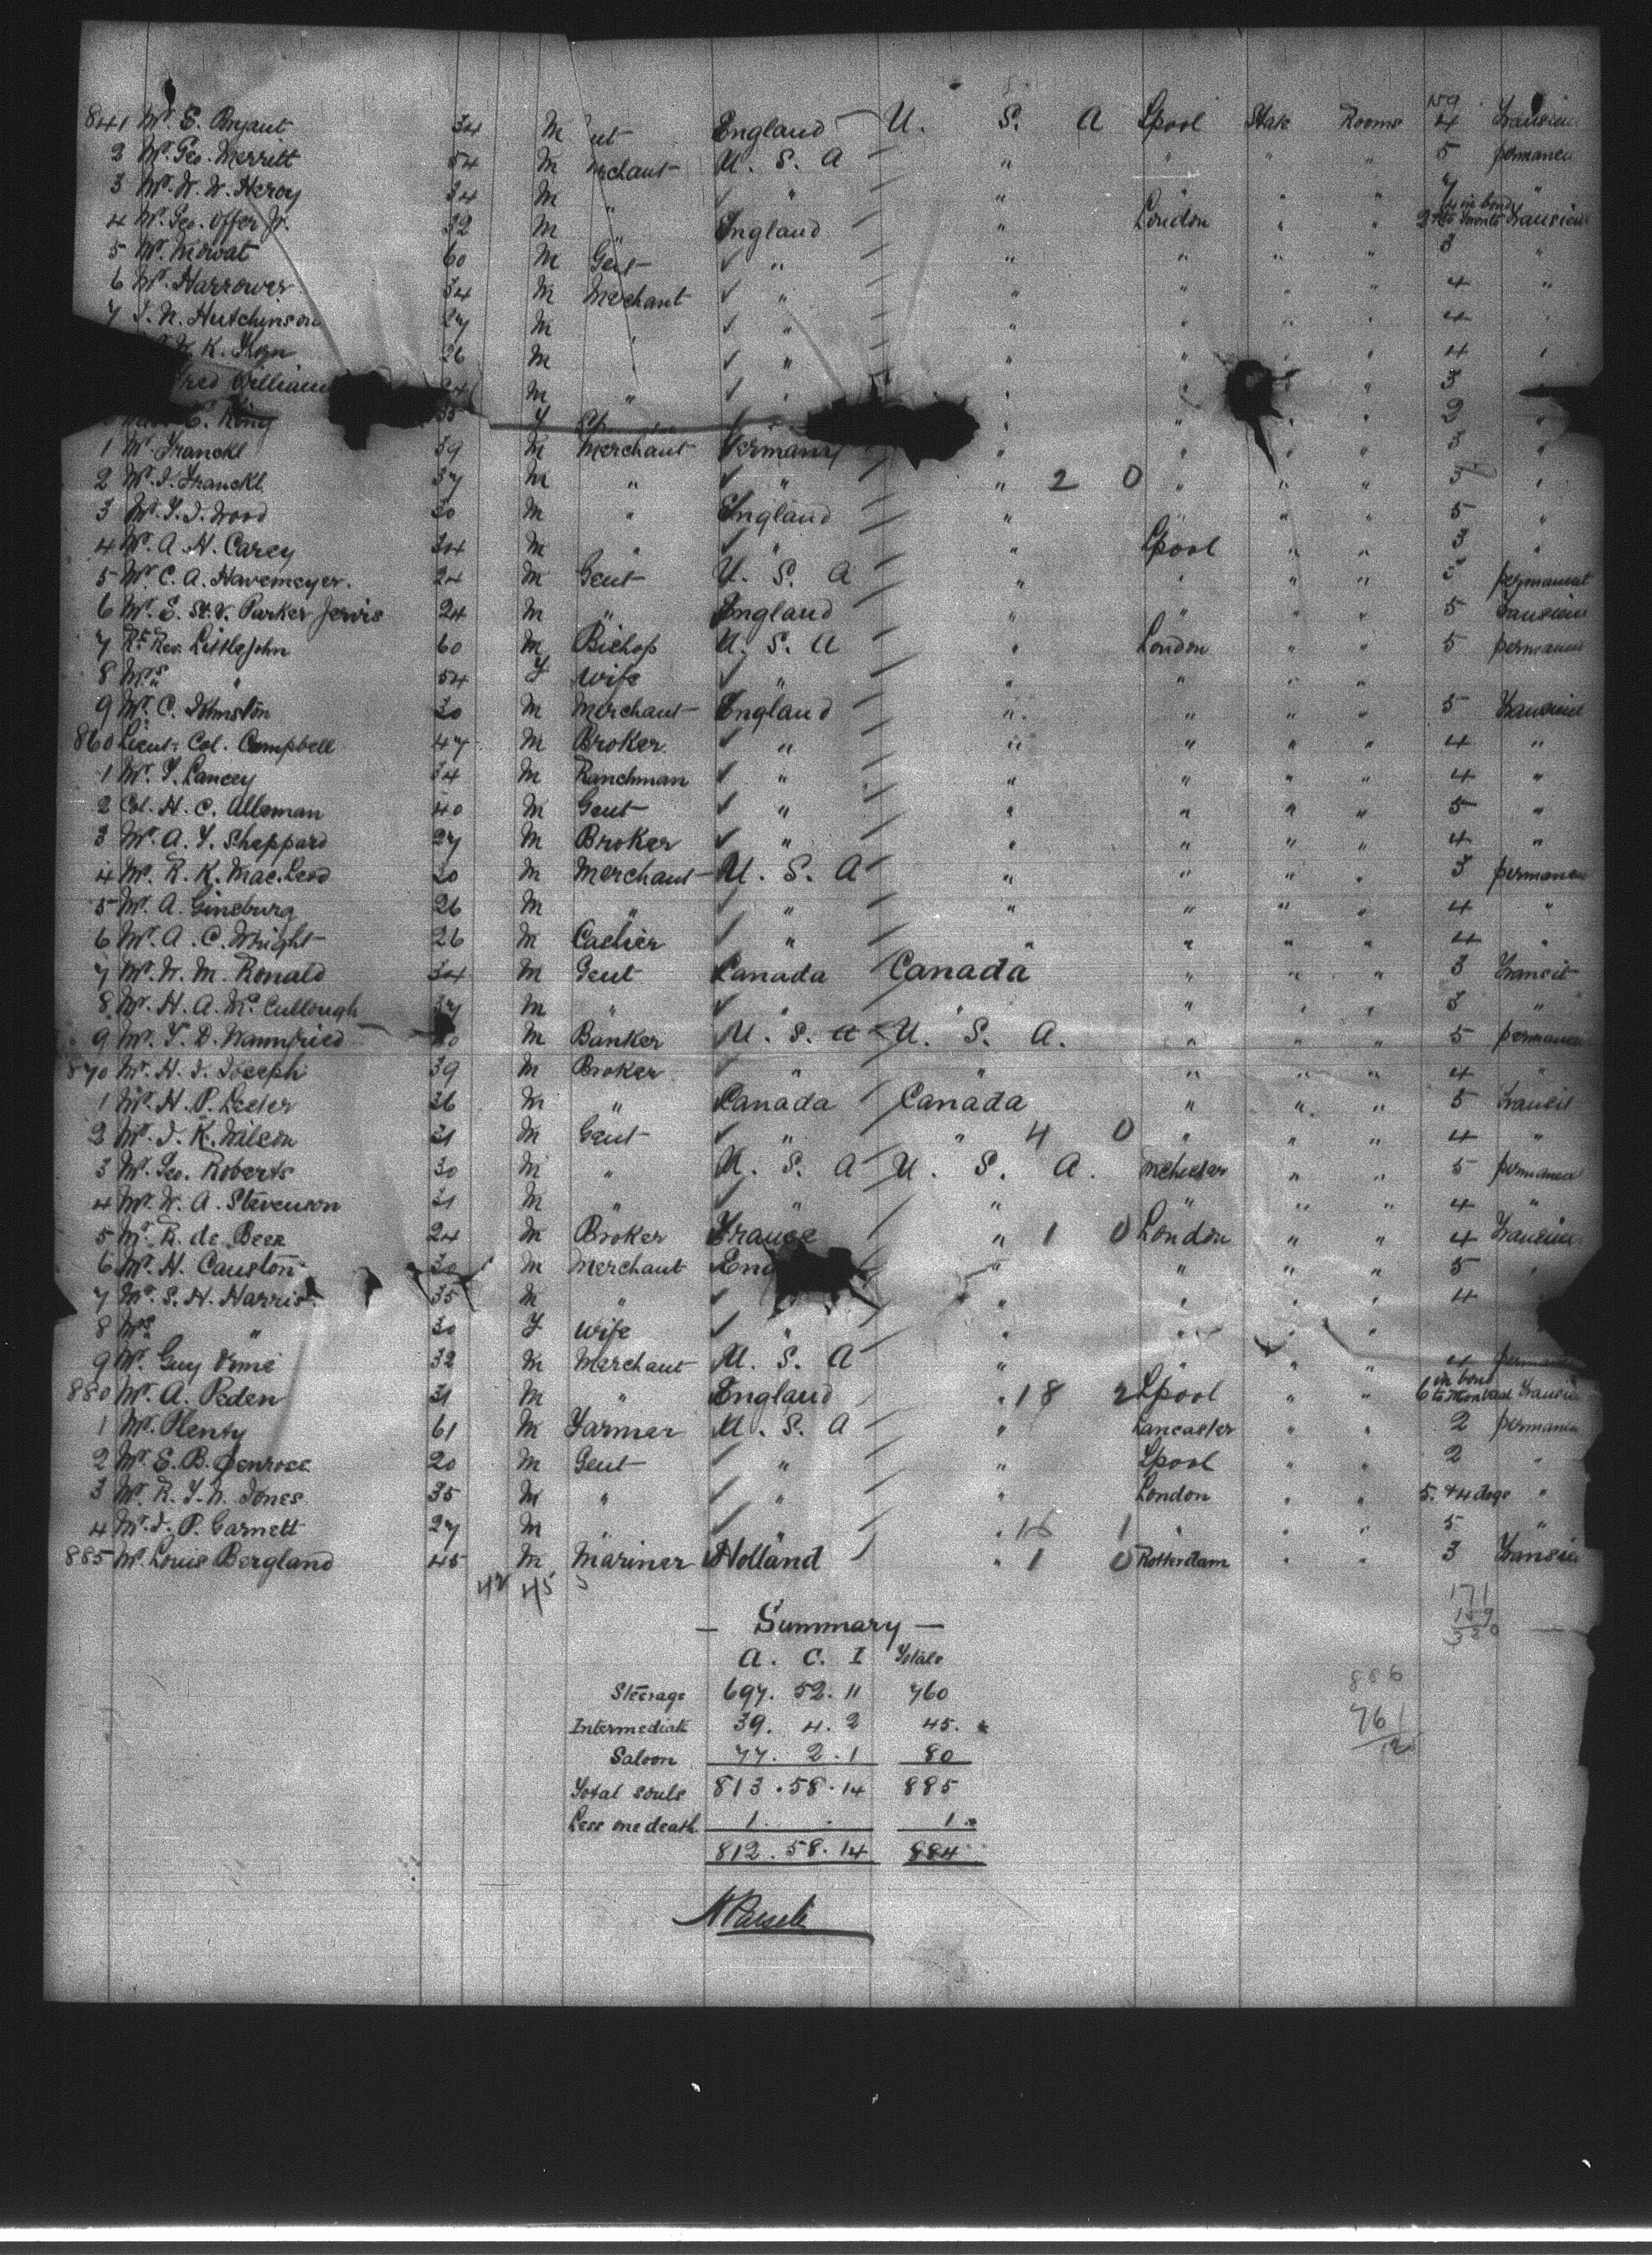 159
841 Mr. E. Bryant 34 M England U. S. A Lpool State Rooms 4
2 Mr. Geo. Merritt 54 M U. S. A " " " " 5
3 Mr. W. W. Heroy 34 M " " " " " "
4 Mr. Geo. Offer Jr. 32 M " England " London " " 2
5 Mr. Mowat 60 M Gent " " " " " 3 "
6 Mr. Harrower 34 M Merchant " " " " " 4 "
7 J. N. Hutchinson 27 M " " " " " " 4 "
K. 26 M " " " " " 4 "
24 M " " " " " 3
King 35 F " " " " 2 "
1 Mr. Franckl 39 M Merchant Germany " " " " 3 "
2 Mr. J. Franckl 37 M " " " 2 0 " " " 3 "
3 Mr. F. J. Wood 30 M " England " " " " 5 "
4 Mr. A. H. Carey 34 M " " " Lpool " " 3 "
5 Mr. C. A. Havemeyer. 24 M Gent U. S. A " " " " 5 permanent
6 Mr. E. St. V. Parker Jervis 24 M " England " " " " 5
7 Rt. Rev. Littlejohn 60 M Bishop U. S. A " London " " 5
8 Mrs. " 54 F Wife " " " " "
9 Mr. C. Johnston 30 M Merchant England " " " " 5 Transient
860 Lieut. Col. Campbell 47 M Broker " " " " " 4 "
1 Mr. F. Lancey 34 M Ranchman " " " " " 4 "
2 Col. H. C. Alleman 40 M Gent " " " " " 5 "
3 Mr. A. F. Sheppard 27 M Broker " " " " " 4 "
4 Mr. R. K. Mac.Leod 30 M Merchant U. S. A " " " " 3
5 Mr. A. Ginsburg 26 M " " " " " " 4 "
6 Mr. A. C. Wright 26 M Cashier " " " " " 4 "
7 Mr. W. M. Ronald 34 M Gent Canada Canada " " " 3 Transit
8 Mr. H. A. Mc Cullough 37 M " " " " " " 3 "
9 Mr. F. D. Wannfried M Banker U. S. A U. S. A. " " " 5
870 Mr. H. J. Joseph 39 M Broker " " " " " 4 "
1 Mr. H. P. Lester 36 M " Canada Canada " " " 5 Transit
2 Mr. J. K. Wilson 31 M Gent " " 4 0 " " " 4 "
3 Mr. Geo. Roberts 30 M " U. S. A U. S. A. Mchester " " 5 permanent
4 Mr. W. A. Stevenson 31 M " " " " " " 4 "
5 Mr. R. de Beer 24 M Broker France " 1 0 London " " 4
6 Mr. H. Causton 30 M Merchant Eng " " " " 5 "
7 Mr. S. H. Harris 35 M " " " " " 4
8 Mrs. " 30 F Wife " " " " "
9 Mr. Guy 32 M Merchant U. S. A " " " " 4
in bond
880 Mr. A. Peden 31 M " England " 18 2 Lpool " " 6 to Montreal
1 Mr. Henty 61 M Farmer U. S. A " Lancaster " " 2
2 Mr. E. B. Penrose 20 M Gent " " Lpool 2 "
3 Mr. R. F. W. Jones 35 M " " " London " " 5. + 4 dogs "
4 Mr. J. P. Garnett 27 M " " " 15 1 " " " 5 "
885 Mr. Louis Bergland 45 M Mariner Holland " 1 0 Rotterdam " " 3
42 45
171
159
— Summary —
A. C. I Totals
Steerage 697. 52. 11 760
886
Intermediate 39. 4. 2 45.
761
Saloon 77. 2. 1 80
Total souls 813. 58. 14 885
Less one death 1. . 1.
812. 58. 14 884